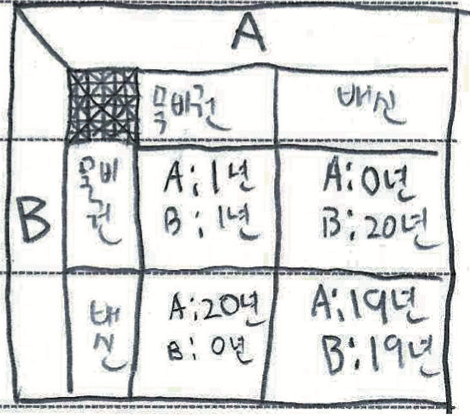 A
묵비권
배신
B
묵비
권
A:1년
B:1년
A:0년
B:20년
배
신
A:20년
B:0년
A:19년
B:19년